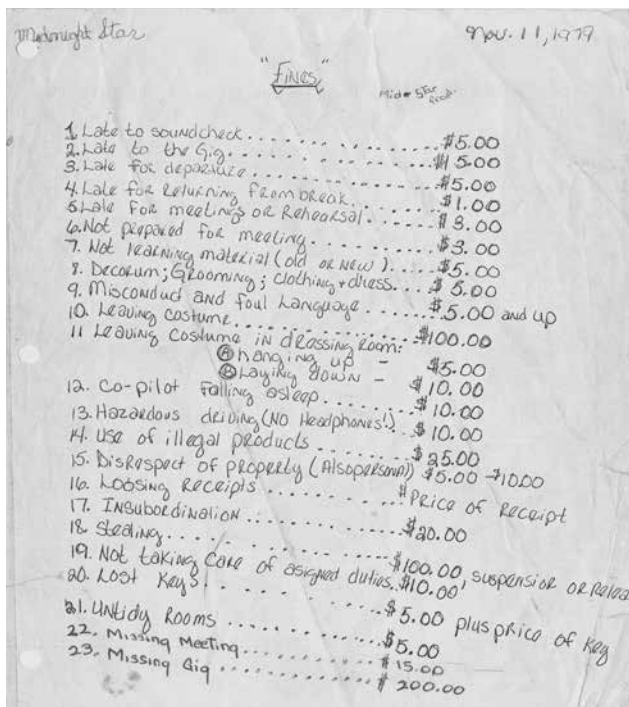 Midnight Star
Nov. 11, 1979
"FINES"
Mid * Star Prod.
1. Late to soundcheck............... $5.00
2. Late to the Gig............... $15.00
3. Late for departure............... $5.00
4. Late for Returning from break............... $1.00
5. Late For meetings or Rehearsal............... $3.00
6. Not prepared for meeting............... $3.00
7. Not learning material (old or new)..... $5.00
8. Decorum; Grooming; Clothing + dress.... $5.00
9. Misconduct and foul Language...... $5.00 and up
10. Leaving costume............... $100.00
11 Leaving Costume in dressing Room:
Ⓐ hanging up - $5.00
Ⓑ Laying down - $10.00
12. Co-pilot falling asleep........ $10.00
13. Hazardous driving (NO Headphones!)... $10.00
14. Use of illegal products........ $25.00
15. Disrespect of property (Also personal) $5.00 - $10.00
16. Loosing Receipts........ $ Price of Receipt
17. Insubordination............... $20.00
18. Stealing............... $100.00, suspension or
19. Not taking care of asigned duties.. $10.00
20. Lost Keys!............... $5.00 plus price of key
21. Untidy Rooms............... $5.00
22. Missing Meeting............... $15.00
23. Missing Gig............... $200.00